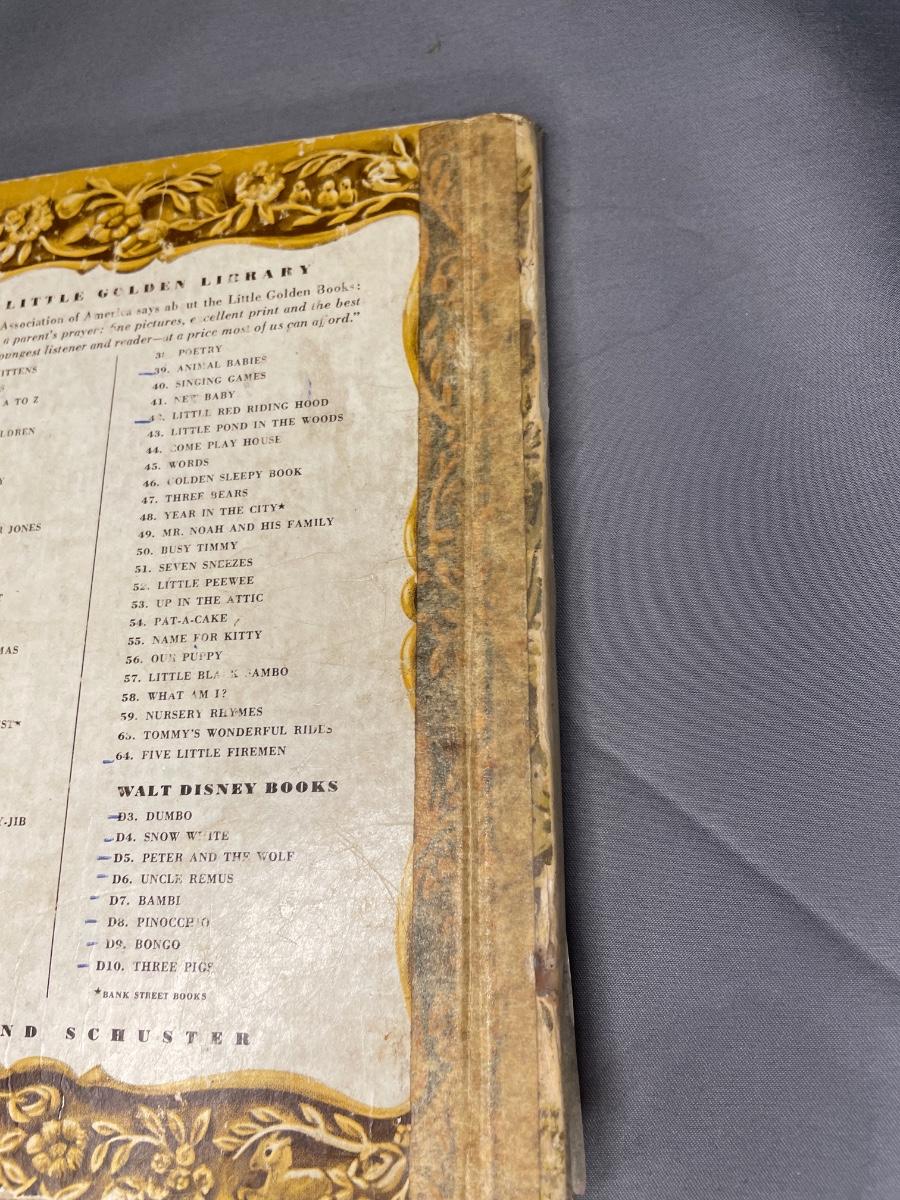 LITTLE GOLDEN LIBRARY
Association of America says about the Little Golden Books:
a parent's prayer: fine pictures, excellent print and the best
oungest listener and reader—at a price most of us can afford."
ITTENS
S
A TO Z
LDREN
Y
R JONES
T
MAS
ST★
Y-JIB
POETRY
39. ANIMAL BABIES
40. SINGING GAMES
41. NEW BABY
42. LITTLE RED RIDING HOOD
43. LITTLE POND IN THE WOODS
44. COME PLAY HOUSE
45. WORDS
46. GOLDEN SLEEPY BOOK
47. THREE BEARS
48. YEAR IN THE CITY★
49. MR. NOAH AND HIS FAMILY
50. BUSY TIMMY
51. SEVEN SNEEZES
52. LITTLE PEEWEE
53. UP IN THE ATTIC
54. PAT-A-CAKE
55. NAME FOR KITTY
56. OUR PUPPY
57. LITTLE BLACK SAMBO
58. WHAT AM I?
59. NURSERY RHYMES
63. TOMMY'S WONDERFUL RIDES
64. FIVE LITTLE FIREMEN
WALT DISNEY BOOKS
D3. DUMBO
D4. SNOW WHITE
D5. PETER AND THE WOLF
D6. UNCLE REMUS
D7. BAMBI
D8. PINOCCHIO
D9. BONGO
D10. THREE PIGS
★BANK STREET BOOKS
ND SCHUSTER